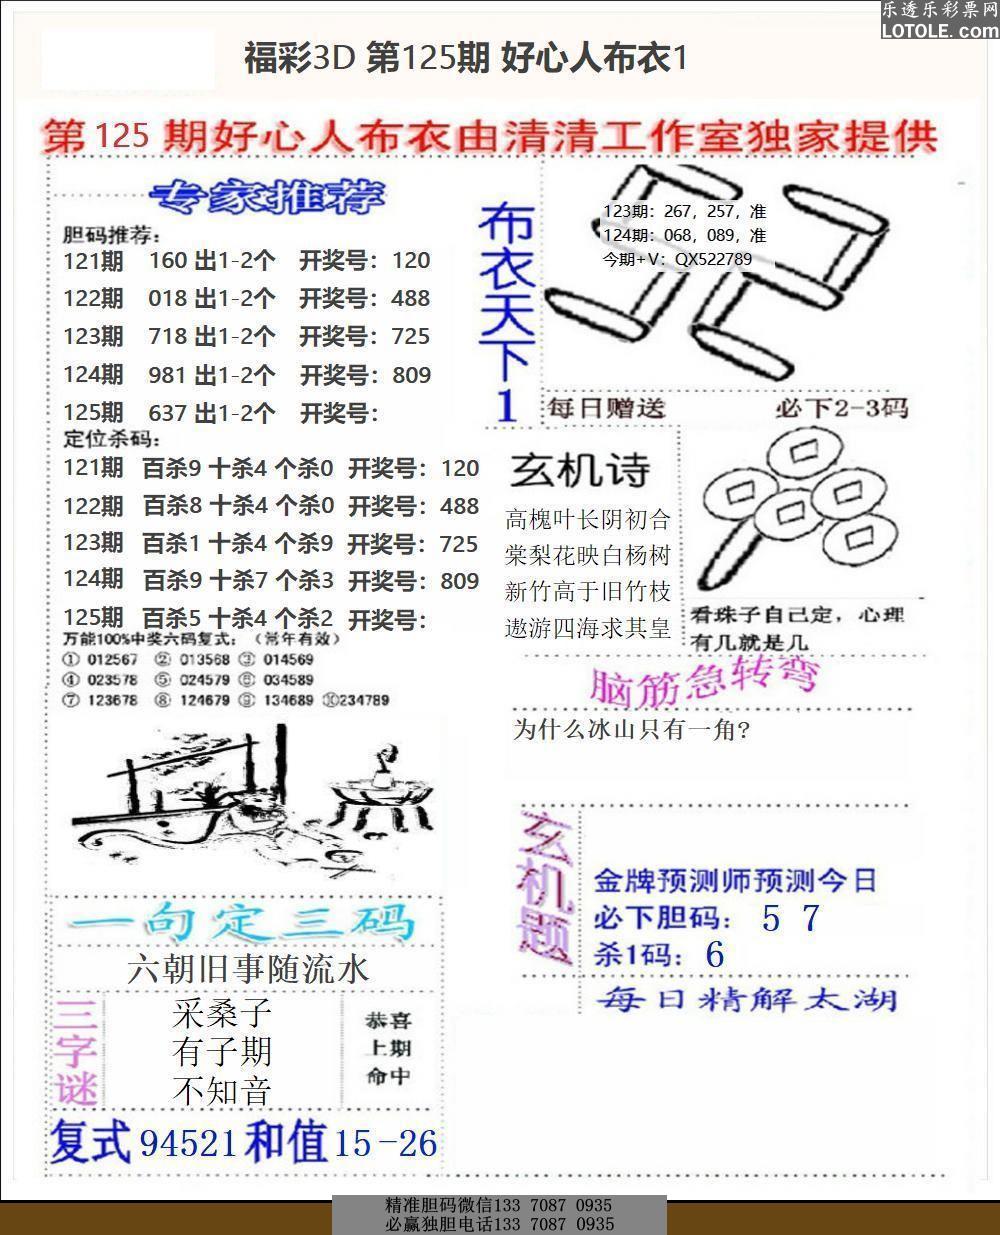 乐透乐彩票网
LOTOLE.com
福彩3D 第125期 好心人布衣1
第 125 期好心人布衣由清清工作室独家提供
专家推荐
胆码推荐：
121期 160 出1-2个 开奖号：120
122期 018 出1-2个 开奖号：488
123期 718 出1-2个 开奖号：725
124期 981 出1-2个 开奖号：809
125期 637 出1-2个 开奖号：
定位杀码：
121期 百杀9 十杀4 个杀0 开奖号：120
122期 百杀8 十杀4 个杀0 开奖号：488
123期 百杀1 十杀4 个杀9 开奖号：725
124期 百杀9 十杀7 个杀3 开奖号：809
125期 百杀5 十杀4 个杀2 开奖号：
万能100%中奖六码复式：（常年有效）
① 012567 ② 013568 ③ 014569
④ 023578 ⑤ 024579 ⑥ 034589
⑦ 123678 ⑧ 124679 ⑨ 134689 ⑩234789
一句定三码
六朝旧事随流水
三字谜
采桑子
有子期
不知音
恭喜
上期
命中
复式 94521 和值 15-26
布衣天下1
123期：267，257，准
124期：068，089，准
今期+V：QX522789
每日赠送 必下2-3码
玄机诗
高槐叶长阴初合
棠梨花映白杨树
新竹高于旧竹枝
遨游四海求其皇
看珠子自己定，心理
有几就是几
脑筋急转弯
为什么冰山只有一角?
玄机题
金牌预测师预测今日
必下胆码： 5 7
杀1码： 6
每日精解太湖
精准胆码微信133 7087 0935
必赢独胆电话133 7087 0935